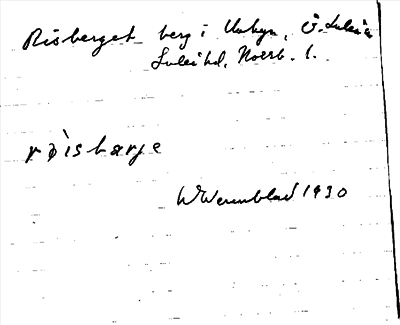 Risberget berg i Unbyn, Ö. Luleå
Luleå td. Norrb. l.
røìsbarje
W Wennblad 1930